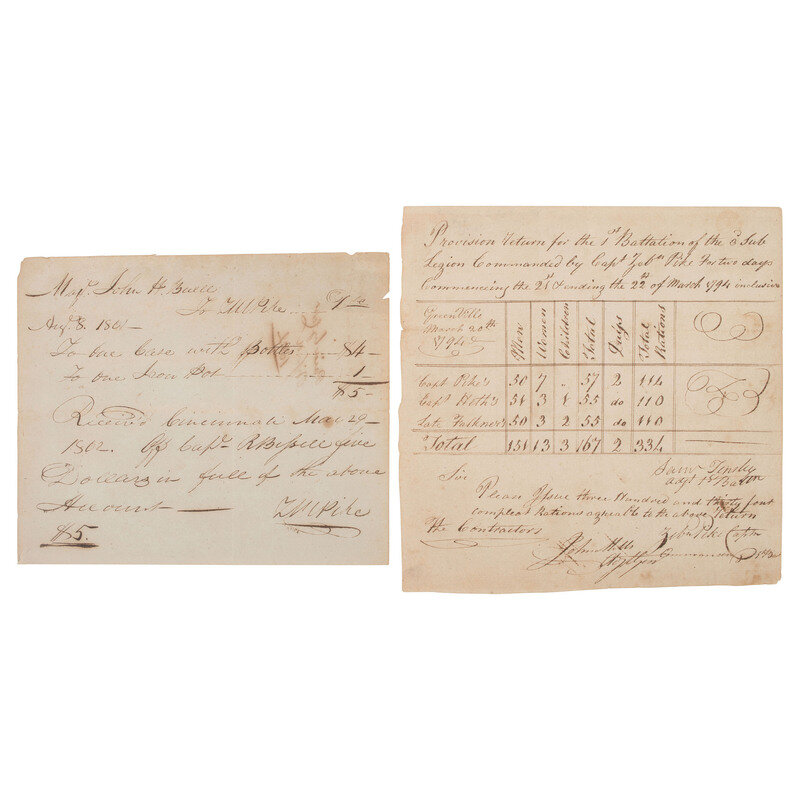 Majr. John H. Buell
To ZMPike Dr
Augt. 8. 1801-
To one Case with Bottles $4-
To one Iron Pot 1
$5-
Received Cincinnati May 29-
1802. Off Capn. R Bissell five
Dollars in full of the above
Account ZMPike
$5.
Provision Return for the 1st Battalion of the 3d Sub
Legion Commanded by Capt Zebn Pike For two days
Commencing the 21st & ending the 22th of March 1794 inclusive
Greenville March 20th 1794 Men Women Children Total Days Total Rations
Capt Pike's 50 7 " 57 2 114
Capt Heth's 51 3 1 55 do 110
Late Faulkner's 50 3 2 55 do 110
Total 151 13 3 167 2 334
Saml Tinsley
adgt 1st Battn
Sir
Please Issue three Hundred and thirty four
compleat Rations agreable to the above Return
The Contractors Zebn Pike Captn
John Mills Commanding